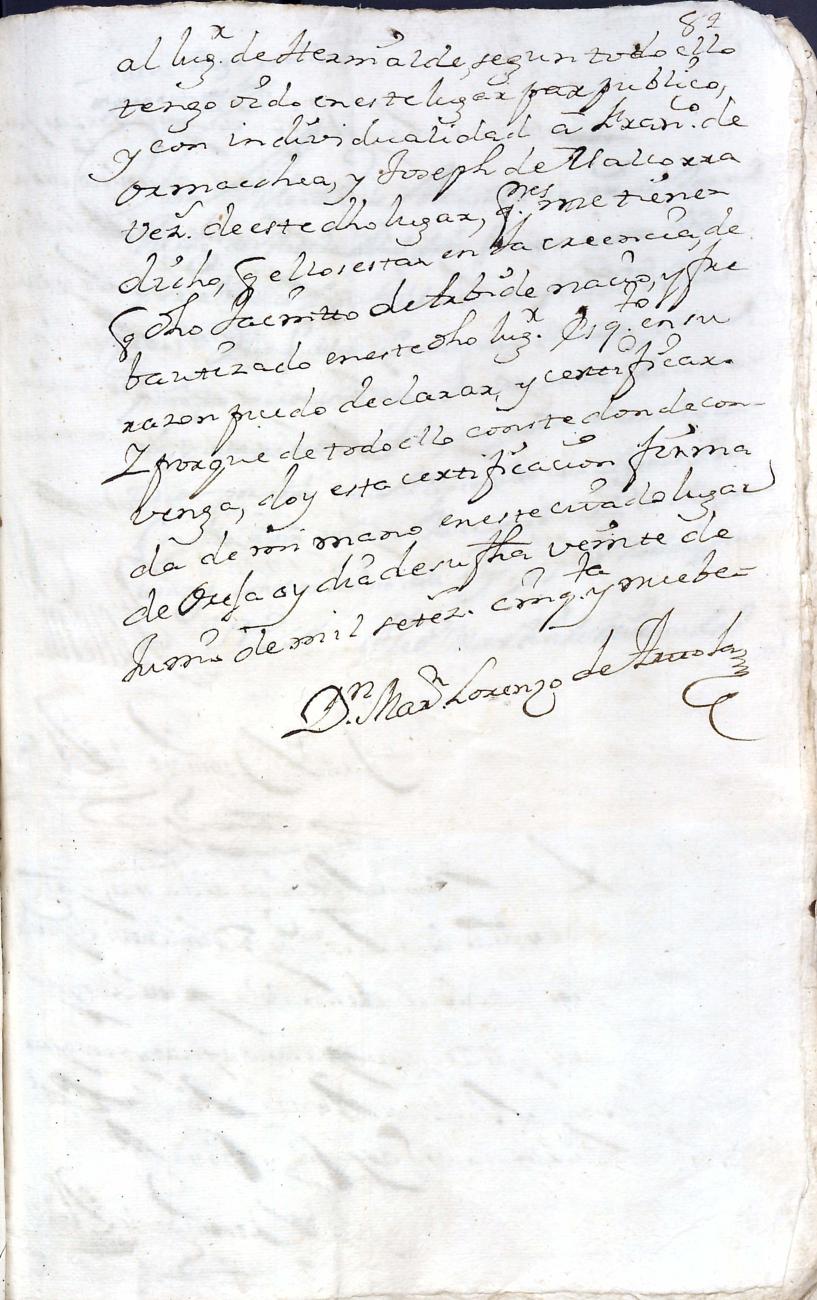 82
al lugr. de Hermialde, segun todo ello
tengo oido en este lugar por publico,
y con individualidad a Franco. de
Ormaechea, y Joseph de Vallorra
vezs. de este dho lugar, qnes. me tienen
dicho, q ellos estan en la creencia, de
q dho Jacintto de Iturbide nacio, y fue
bautizado en este dho lugr. Es qto. en su
razon puedo declarar, y certificar.
Y porque de todo ello conste donde con-
venga, doy esta certificacion firma
da de mi mano en este citado lugar
de Orexa oy dia de su fha veinte de
Junio de mil setez. cinqta. y nuebe=
Dn. Marn. Lorenzo de